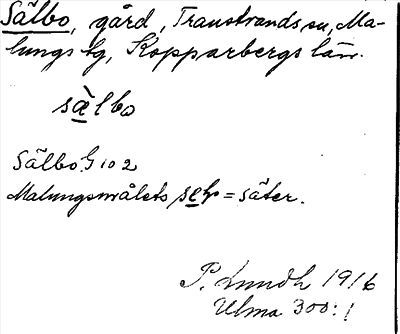 Sälbo, gård, Transtrands sn, Ma-
lungs tg, Kopparbergs län.
sælbo
Sälbo. G 102
Malungsmålets = säter.
P. Lundh 1916
Ulma 300:1